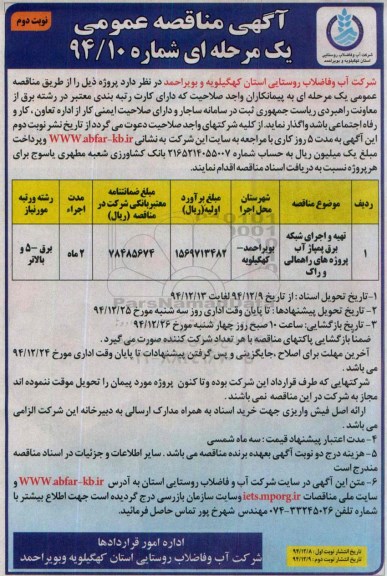 نوبت دوم
آگهی مناقصه عمومی
یک مرحله ای شماره ۹۴/۱۰
شرکت آب و فاضلاب روستایی
استان کهگیلویه و بویراحمد
شرکت آب وفاضلاب روستایی استان کهگیلویه و بویراحمد در نظر دارد پروژه ذیل را از طریق مناقصه
عمومی یک مرحله ای به پیمانکاران واجد صلاحیت که دارای کارت رتبه بندی معتبر در رشته برق از
معاونت راهبردی ریاست جمهوری ثبت در سامانه ساجار و دارای صلاحیت ایمنی کار از اداره تعاون، کار و
رفاه اجتماعی باشد واگذار نماید. از کلیه شرکتهای واجد صلاحیت دعوت می گردد از تاریخ نشر نوبت دوم
این آگهی به مدت ۵ روز کاری با مراجعه به سایت این شرکت به نشانی WWW.abfar-kb.ir و پرداخت
مبلغ یک میلیون ریال به حساب شماره ۲۱۶۵۲۱۴۰۵۵۰۰۷ بانک کشاورزی شعبه مطهری یاسوج برای
هر پروژه نسبت به دریافت اسناد مناقصه اقدام نمایند.
ردیف | موضوع مناقصه | شهرستان محل اجرا | مبلغ برآورد اولیه(ریال) | مبلغ ضمانتنامه معتبربانکی شرکت در مناقصه (ریال) | مدت اجراء | رشته ورتبه موردنیاز
۱ | تهیه و اجرای شبکه برق پمپاژ آب پروژه های راهمالی و راک | بویراحمد- کهگیلویه | ۱۵۶۹۷۱۳۴۸۲ | ۷۸۴۸۵۶۷۴ | ۲ ماه | برق -۵ و بالاتر
۱- تاریخ تحویل اسناد : از تاریخ ۹۴/۱۲/۹ لغایت ۹۴/۱۲/۱۳
۲- تاریخ تحویل پیشنهادها : تا پایان وقت اداری روز سه شنبه مورخ ۹۴/۱۲/۲۵
۳- تاریخ بازگشایی: ساعت ۱۰ صبح روز چهار شنبه مورخ ۹۴/۱۲/۲۶
ضمنا بازگشایی پاکتهای مناقصه با هر تعداد شرکت کننده صورت می گیرد.
آخرین مهلت برای اصلاح ،جایگزینی و پس گرفتن پیشنهادات تا پایان وقت اداری مورخ ۹۴/۱۲/۲۴
می باشد.
شرکتهایی که طرف قرارداد این شرکت بوده وتا کنون پروژه مورد پیمان را تحویل موقت ننموده اند
مجاز به شرکت در این مناقصه نمی باشند.
ارائه اصل فیش واریزی جهت خرید اسناد به همراه مدارک ارسالی به دبیرخانه این شرکت الزامی
می باشد.
۴- مدت اعتبار پیشنهاد قیمت : سه ماه شمسی
۵- هزینه درج دو نوبت آگهی بعهده برنده مناقصه می باشد . سایر اطلاعات و جزئیات در اسناد مناقصه
مندرج است
۶- متن این آگهی در سایت شرکت آب و فاضلاب روستایی استان به آدرس WWW.abfar-kb.ir و
سایت ملی مناقصات iets.mporg.ir وسایت سازمان بازرسی درج گردیده است جهت اطلاع بیشتر با
شماره تلفن ۳۳۲۴۵۰۲۶-۰۷۴ مهندس شهرخ پور تماس حاصل فرمائید.
اداره امور قراردادها
شرکت آب وفاضلاب روستایی استان کهگیلویه وبویراحمد
تاریخ انتشار نوبت اول : ۹۴/۱۲/۸
تاریخ انتشار نوبت دوم : ۹۴/۱۲/۹